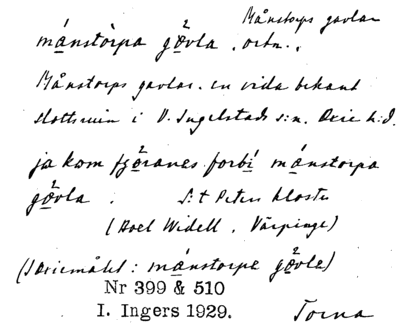 Månstorps gavlar
månstòrpa gǫ̈vla, ortn.,
Månstorps gavlar. en vida bekant
slottsruin i V. Ingelstads s:n. Oxie h:d.
ja kom fjǫ̈ranes forbí månstorpa
gǫ̈vla. S:t Peters kloster
(Axel Widell, Värpinge)
(Oxiemålet: månstorpe gǫ̈vle)
Nr 399 & 510
I. Ingers 1929.
Torna